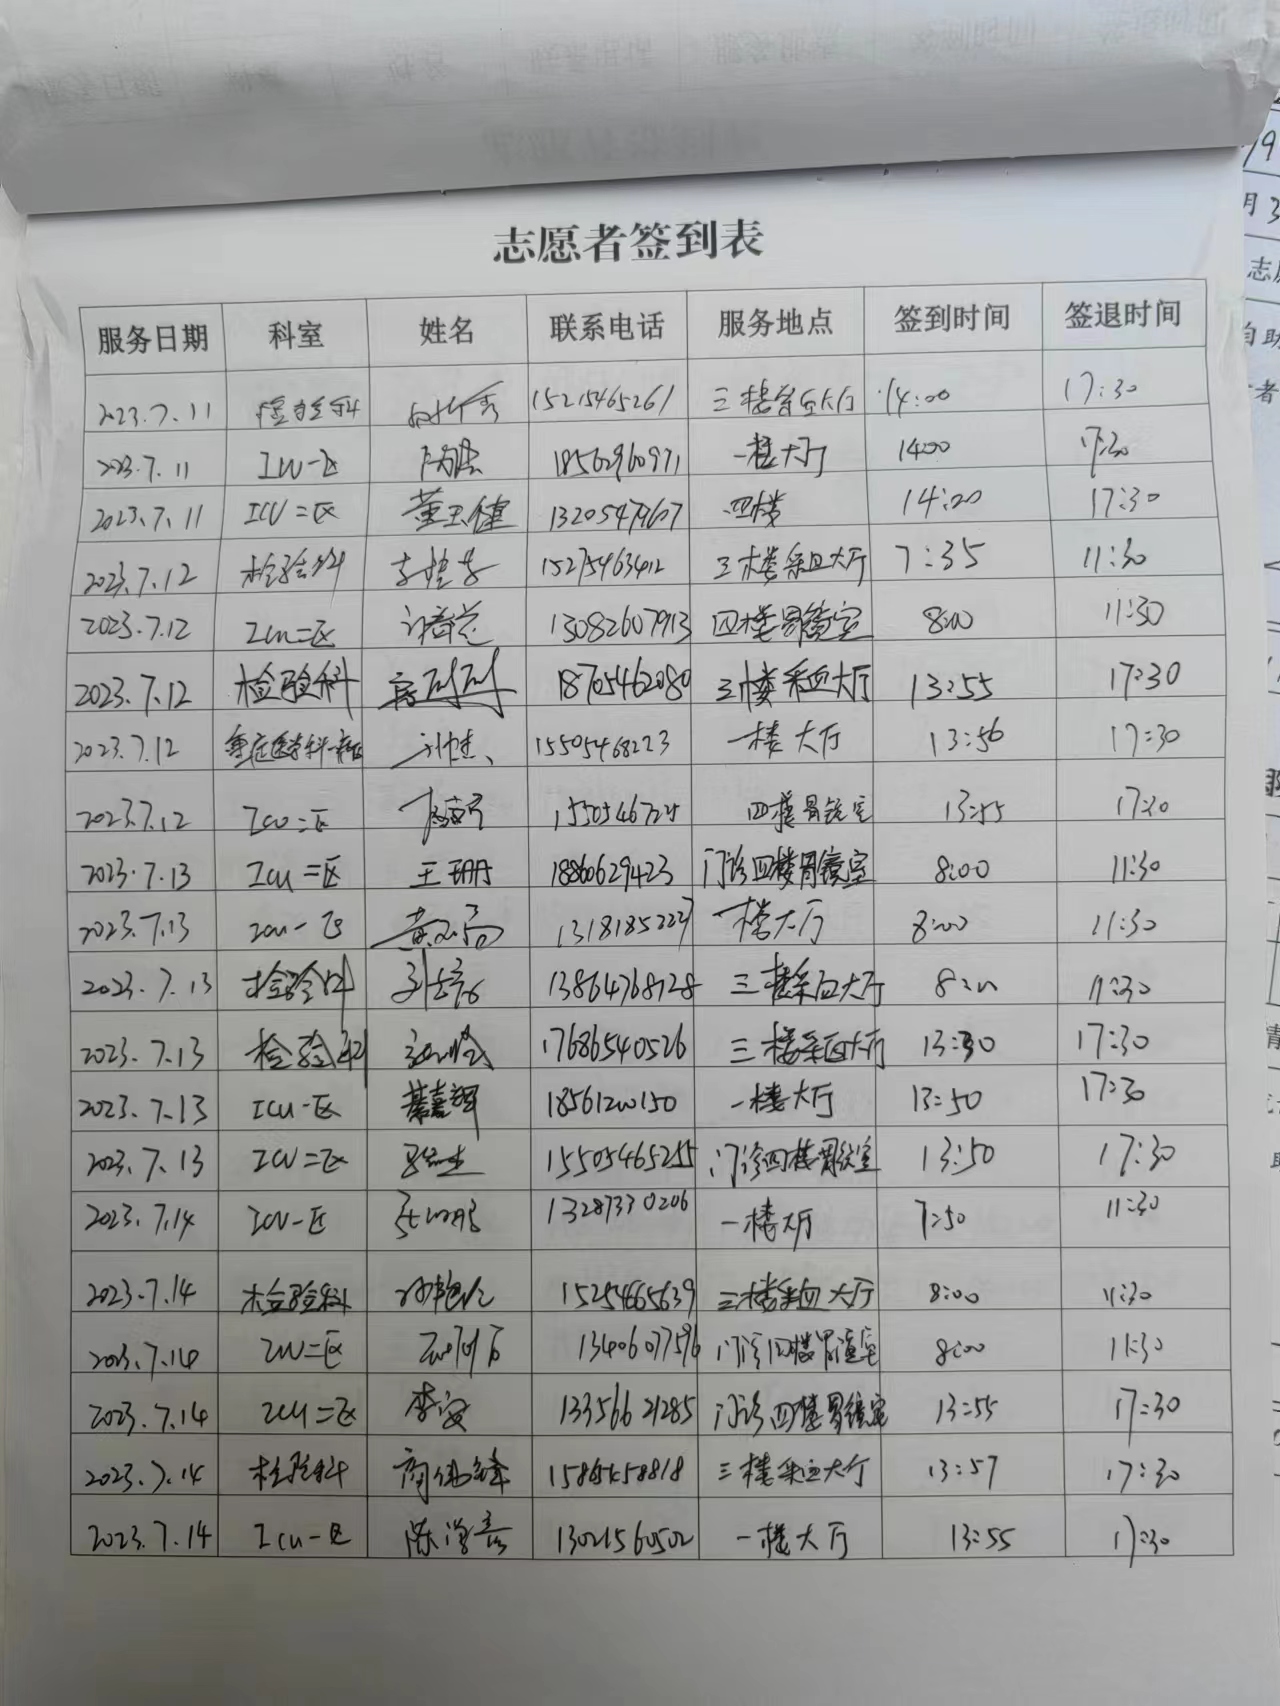 志愿者签到表
服务日期 科室 姓名 联系电话 服务地点 签到时间 签退时间
2023.7.11 检验科 15215465261 三楼采血大厅 14:00 17:30
2023.7.11 ICU一区 18562960971 一楼大厅 1400 17:30
2023.7.11 ICU二区 董卫健 13205477967 四楼 14:20 17:30
2023.7.12 检验科 15275463412 三楼采血大厅 7:35 11:30
2023.7.12 ICU二区 13082607913 四楼胃镜室 8:00 11:30
2023.7.12 检验科 18705462080 三楼采血大厅 13:55 17:30
2023.7.12 重症医学科一病区 15505468223 一楼大厅 13:56 17:30
2023.7.12 ICU二区 四楼胃镜室 13:55 17:30
2023.7.13 ICU二区 王珊 18860629423 门诊四楼胃镜室 8:00 11:30
2023.7.13 ICU一区 13181852227 一楼大厅 8:00 11:30
2023.7.13 检验科 13864768728 三楼采血大厅 8:00 11:30
2023.7.13 检验科 17686540526 三楼采血大厅 13:30 17:30
2023.7.13 ICU一区 綦嘉辉 18561200150 一楼大厅 13:50 17:30
2023.7.13 ICU二区 15505465255 门诊四楼胃镜室 13:50 17:30
2023.7.14 ICU一区 13287330206 一楼大厅 7:50 11:30
2023.7.14 检验科 15254665639 三楼采血大厅 8:00 11:30
2023.7.14 ICU二区 13406077596 门诊四楼胃镜室 8:00 11:30
2023.7.14 ICU二区 李安 13356621285 门诊四楼胃镜室 13:55 17:30
2023.7.14 检验科 商伟锋 15865458818 三楼采血大厅 13:57 17:30
2023.7.14 ICU一区 13021560502 一楼大厅 13:55 17:30